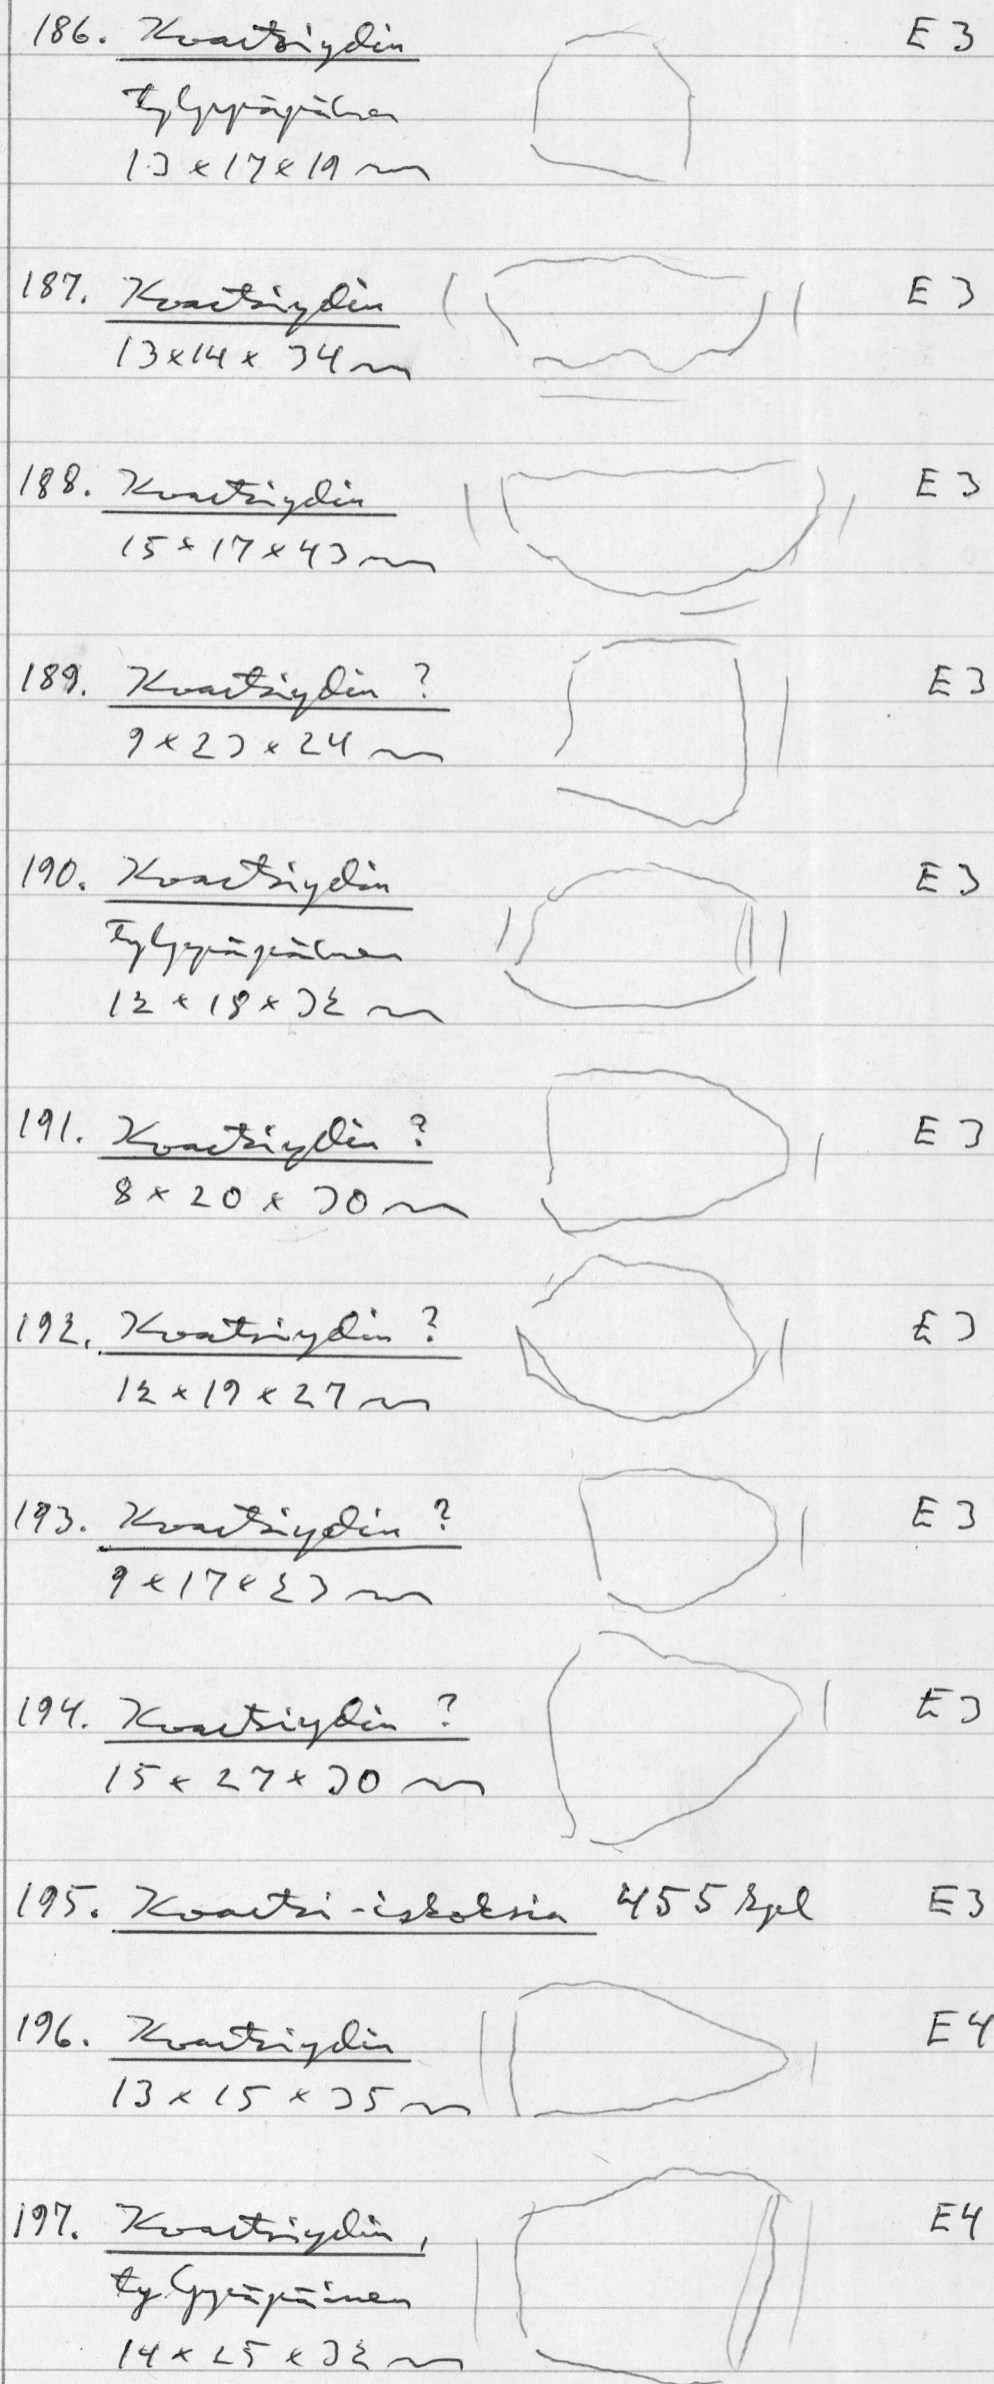 186. Kvartsiydin E 3
tylppäpäinen
13 x 17 x 19 mm
187. Kvartsiydin E 3
13 x 14 x 34 mm
188. Kvartsiydin E 3
15 x 17 x 43 mm
189. Kvartsiydin ? E 3
9 x 23 x 24 mm
190. Kvartsiydin E 3
Tylppäpäinen
12 x 18 x 32 mm
191. Kvartsiydin ? E 3
8 x 20 x 30 mm
192. Kvartsiydin ? E 3
12 x 19 x 27 mm
193. Kvartsiydin ? E 3
9 x 17 x 23 mm
194. Kvartsiydin ? E 3
15 x 27 x 30 mm
195. Kvartsi-iskoksia 455 kpl E 3
196. Kvartsiydin E 4
13 x 15 x 35 mm
197. Kvartsiydin, E 4
tylppäpäinen
14 x 25 x 32 mm